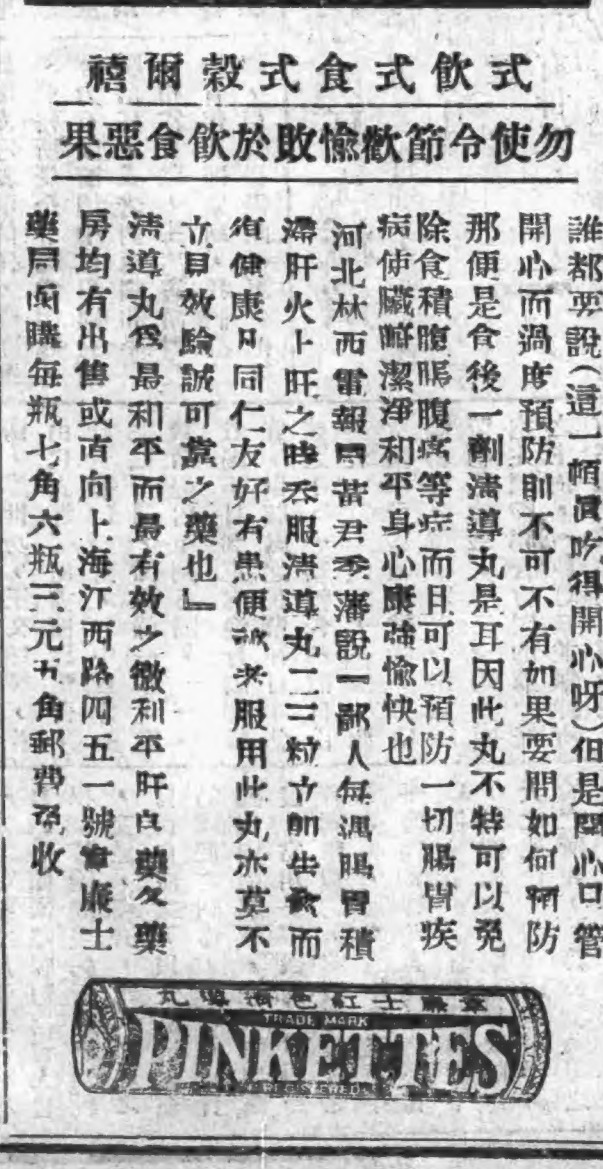 式飲式食式穀爾禧
勿使令節歡愉敗於飲食惡果
誰都要說(這一頓眞吃得開心呀)但是開心口管
開心而過度預防則不可不有如果要問如何預防
那便是食後一劑淸導丸是耳因此丸不特可以免
除食積腹脹腹痛等症而且可以預防一切腸胃疾
病使臟腑潔淨和平身心康強愉快也
河北林西電報局黃君 藩說『鄙人每遇腸胃積
滯肝火上旺之時吞服淸導丸二三粒立卽 而
復健康凡同仁友好有患便祕者服用此丸亦莫不
立見效驗誠可 之藥也』
淸導丸爲最和平而最有效之微利平肝良藥各藥
房均有出售或直向上海江西路四五一號韋廉士
藥局函購每瓶七角六瓶三元五角郵費 收
韋廉士紅色淸導丸
TRADE MARK
PINKETTES
REGISTERED